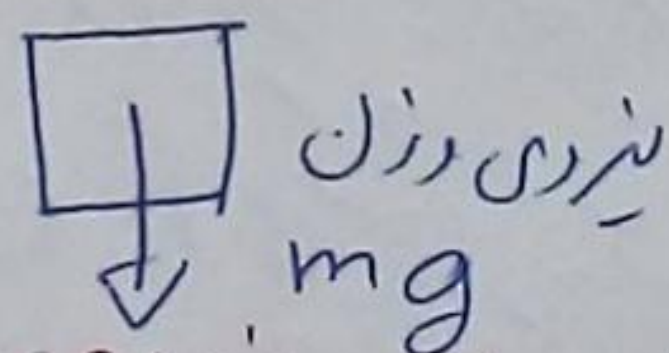 نیروی وزن
mg